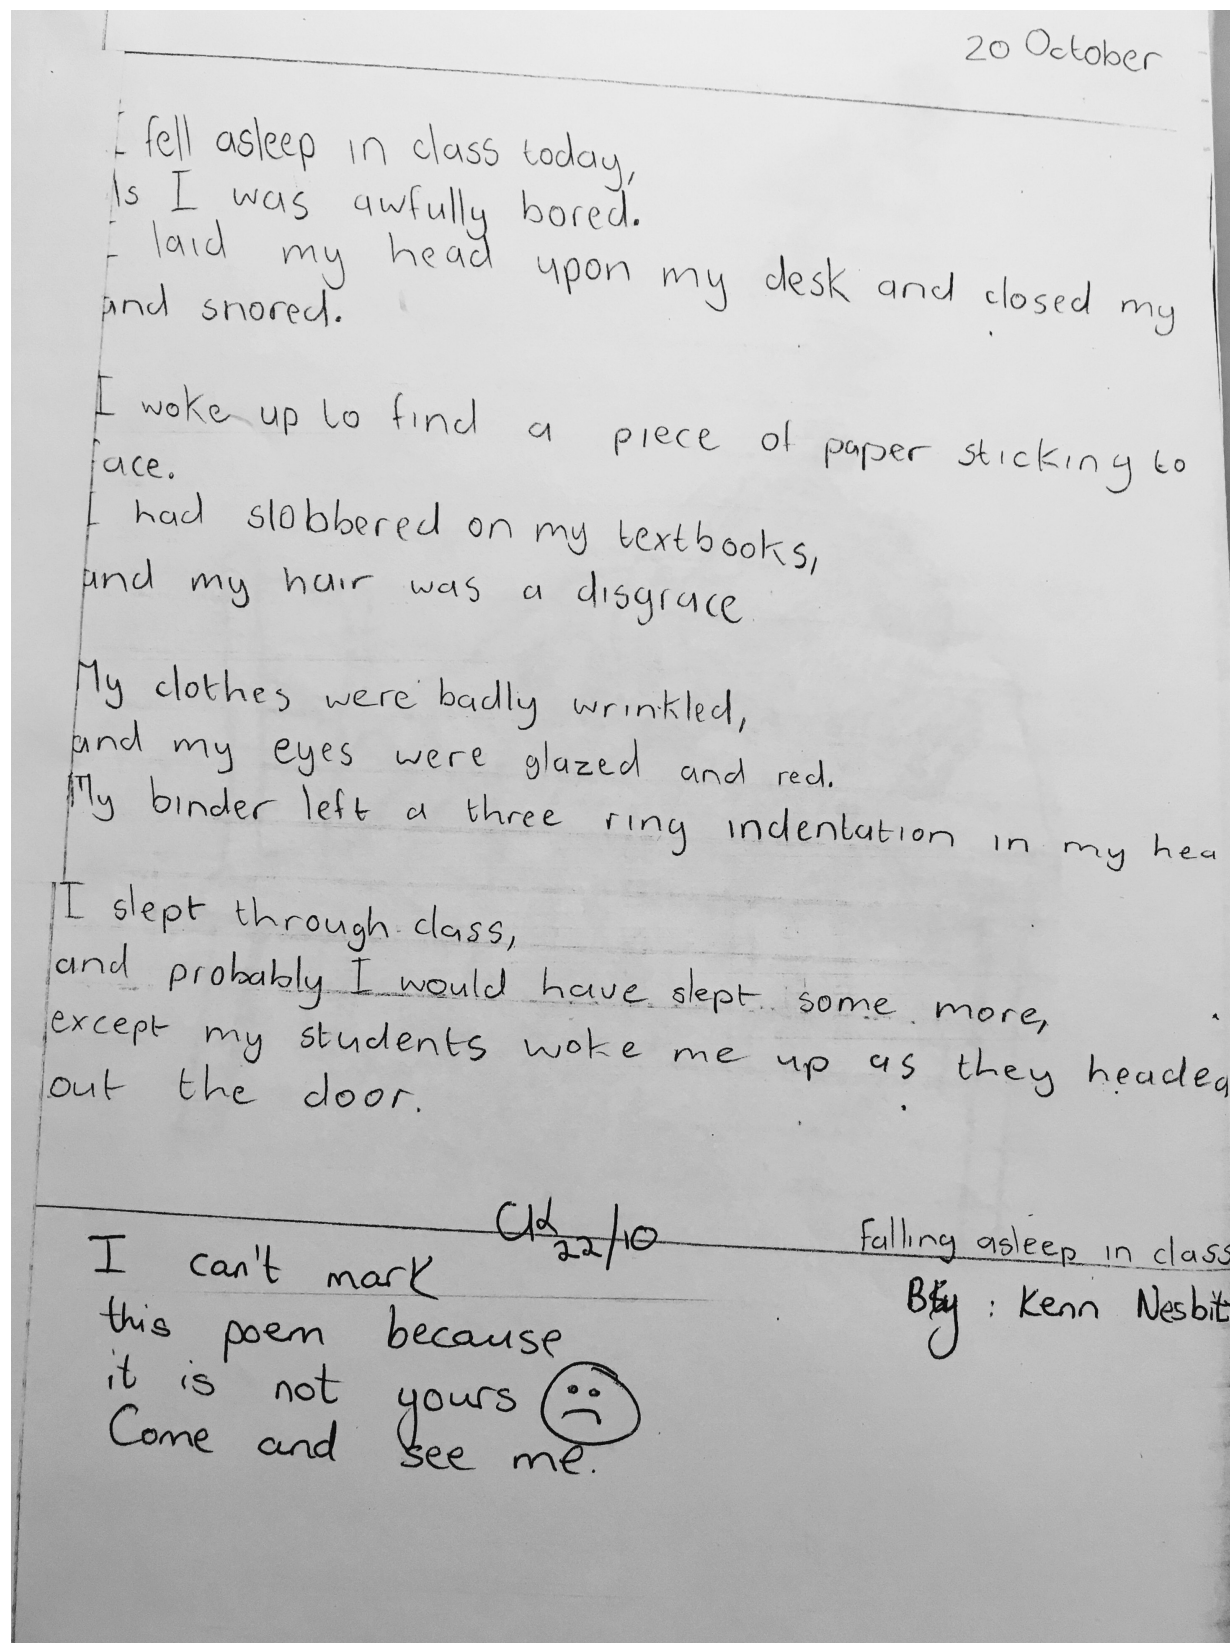 20 October
I fell asleep in class today,
As I was awfully bored.
I laid my head upon my desk and closed my
and snored.
I woke up to find a piece of paper sticking to
face.
I had slobbered on my textbooks,
and my hair was a disgrace
My clothes were badly wrinkled,
and my eyes were glazed and red.
My binder left a three ring indentation in my hea
I slept through class,
and probably I would have slept some more,
except my students woke me up as they headed
out the door.
22/10
Falling asleep in class
By : Kenn Nesbit
I can't mark
this poem because
it is not yours
Come and see me.